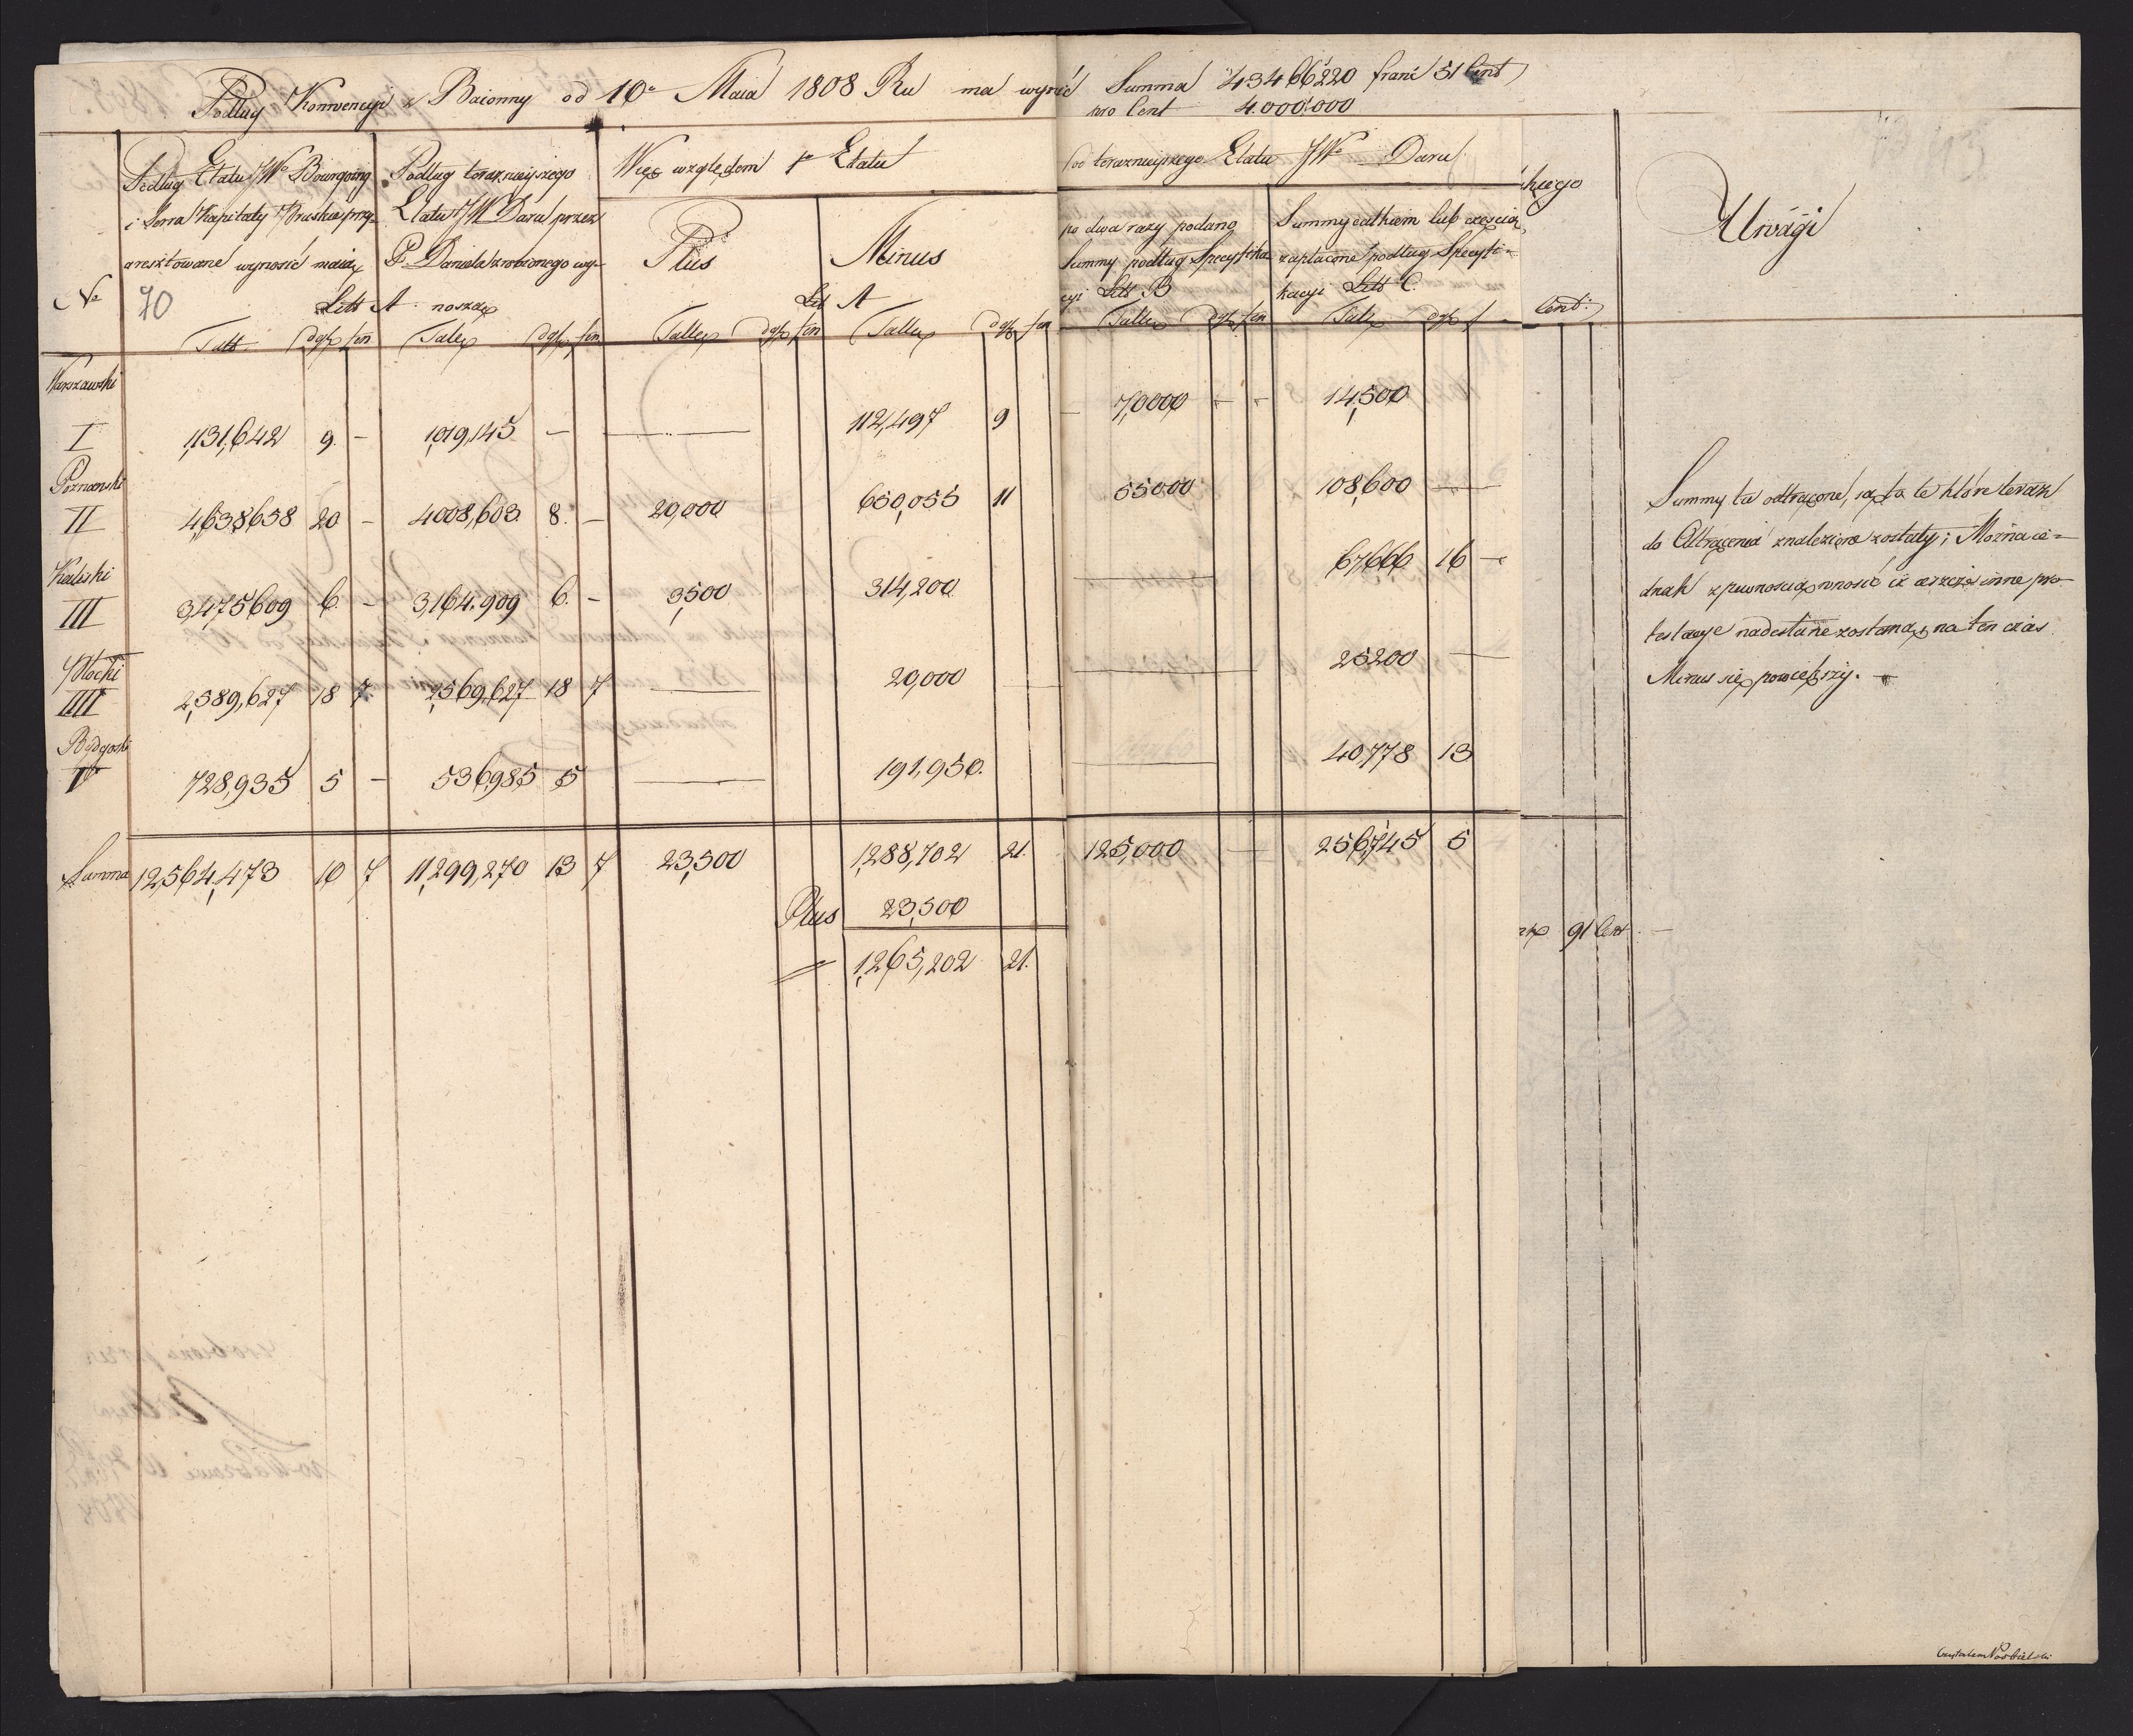 Podług Konwencyi z Baionny od 10o Maia 1808 Ru ma wynieść Summa 43466220 franć 51 Cent
pro Cent 4.000,000
Podług Etatu JWo Bourgoing
i Serra Kapitały Pruskie przy-
aresztowane wynosić maią
Litt A
Podług teraznieyszego
Etatu JW Daru przez
P. Daniela zrobionego wy-
noszą
Więc względem 1o Etatu
Plus
Minus
Lit A
od teraznieyszego Etatu JWo Daru
po dwa razy podano
Summy podług Specyfika
cyi Litt B
Summy całkiem lub częścią
zapłacone podług Specyfi-
kacyi Litt C.
Cent:
Uwagi
No 70
Tall. dgr fen Taler dgr fen Taller dgr fen Taller dgr fen Taller dgr fen Taler dgr f
Warszawski
I 1,131,642 9. - 1,019,145 - 112,497 9 - 7,0000 - - 14,500
Poznanski
II 4,638658 20 - 4008,603 8. - 20,000 650,055 11 55000 108,600
Kaliski
III 3,475609 6. - 3,164.909 6. - 3,500 314,200 67,666 16 -
Płocki
IIII 2,589,627 18 7 2,569,627 18 7 20,000 25200
Bydgoski
V 728,935 5 - 536,985 5 191,950. 40,778 13
Summa 12,564,473 10 7 11,299,270 13 7 23,500 1,288,702 21. 125,000 256,745 5
Plus 23,500
91 Cent
= 1,265,202 21.
Summy ta odtrącone, są to te które teraz
do Odtrącenia znalezione zostały; Można ie-
dnak z pewnością wnosić iż ieszcze inne pro-
testacye nadesłane zostaną, na ten czas
Minus się powiększy.